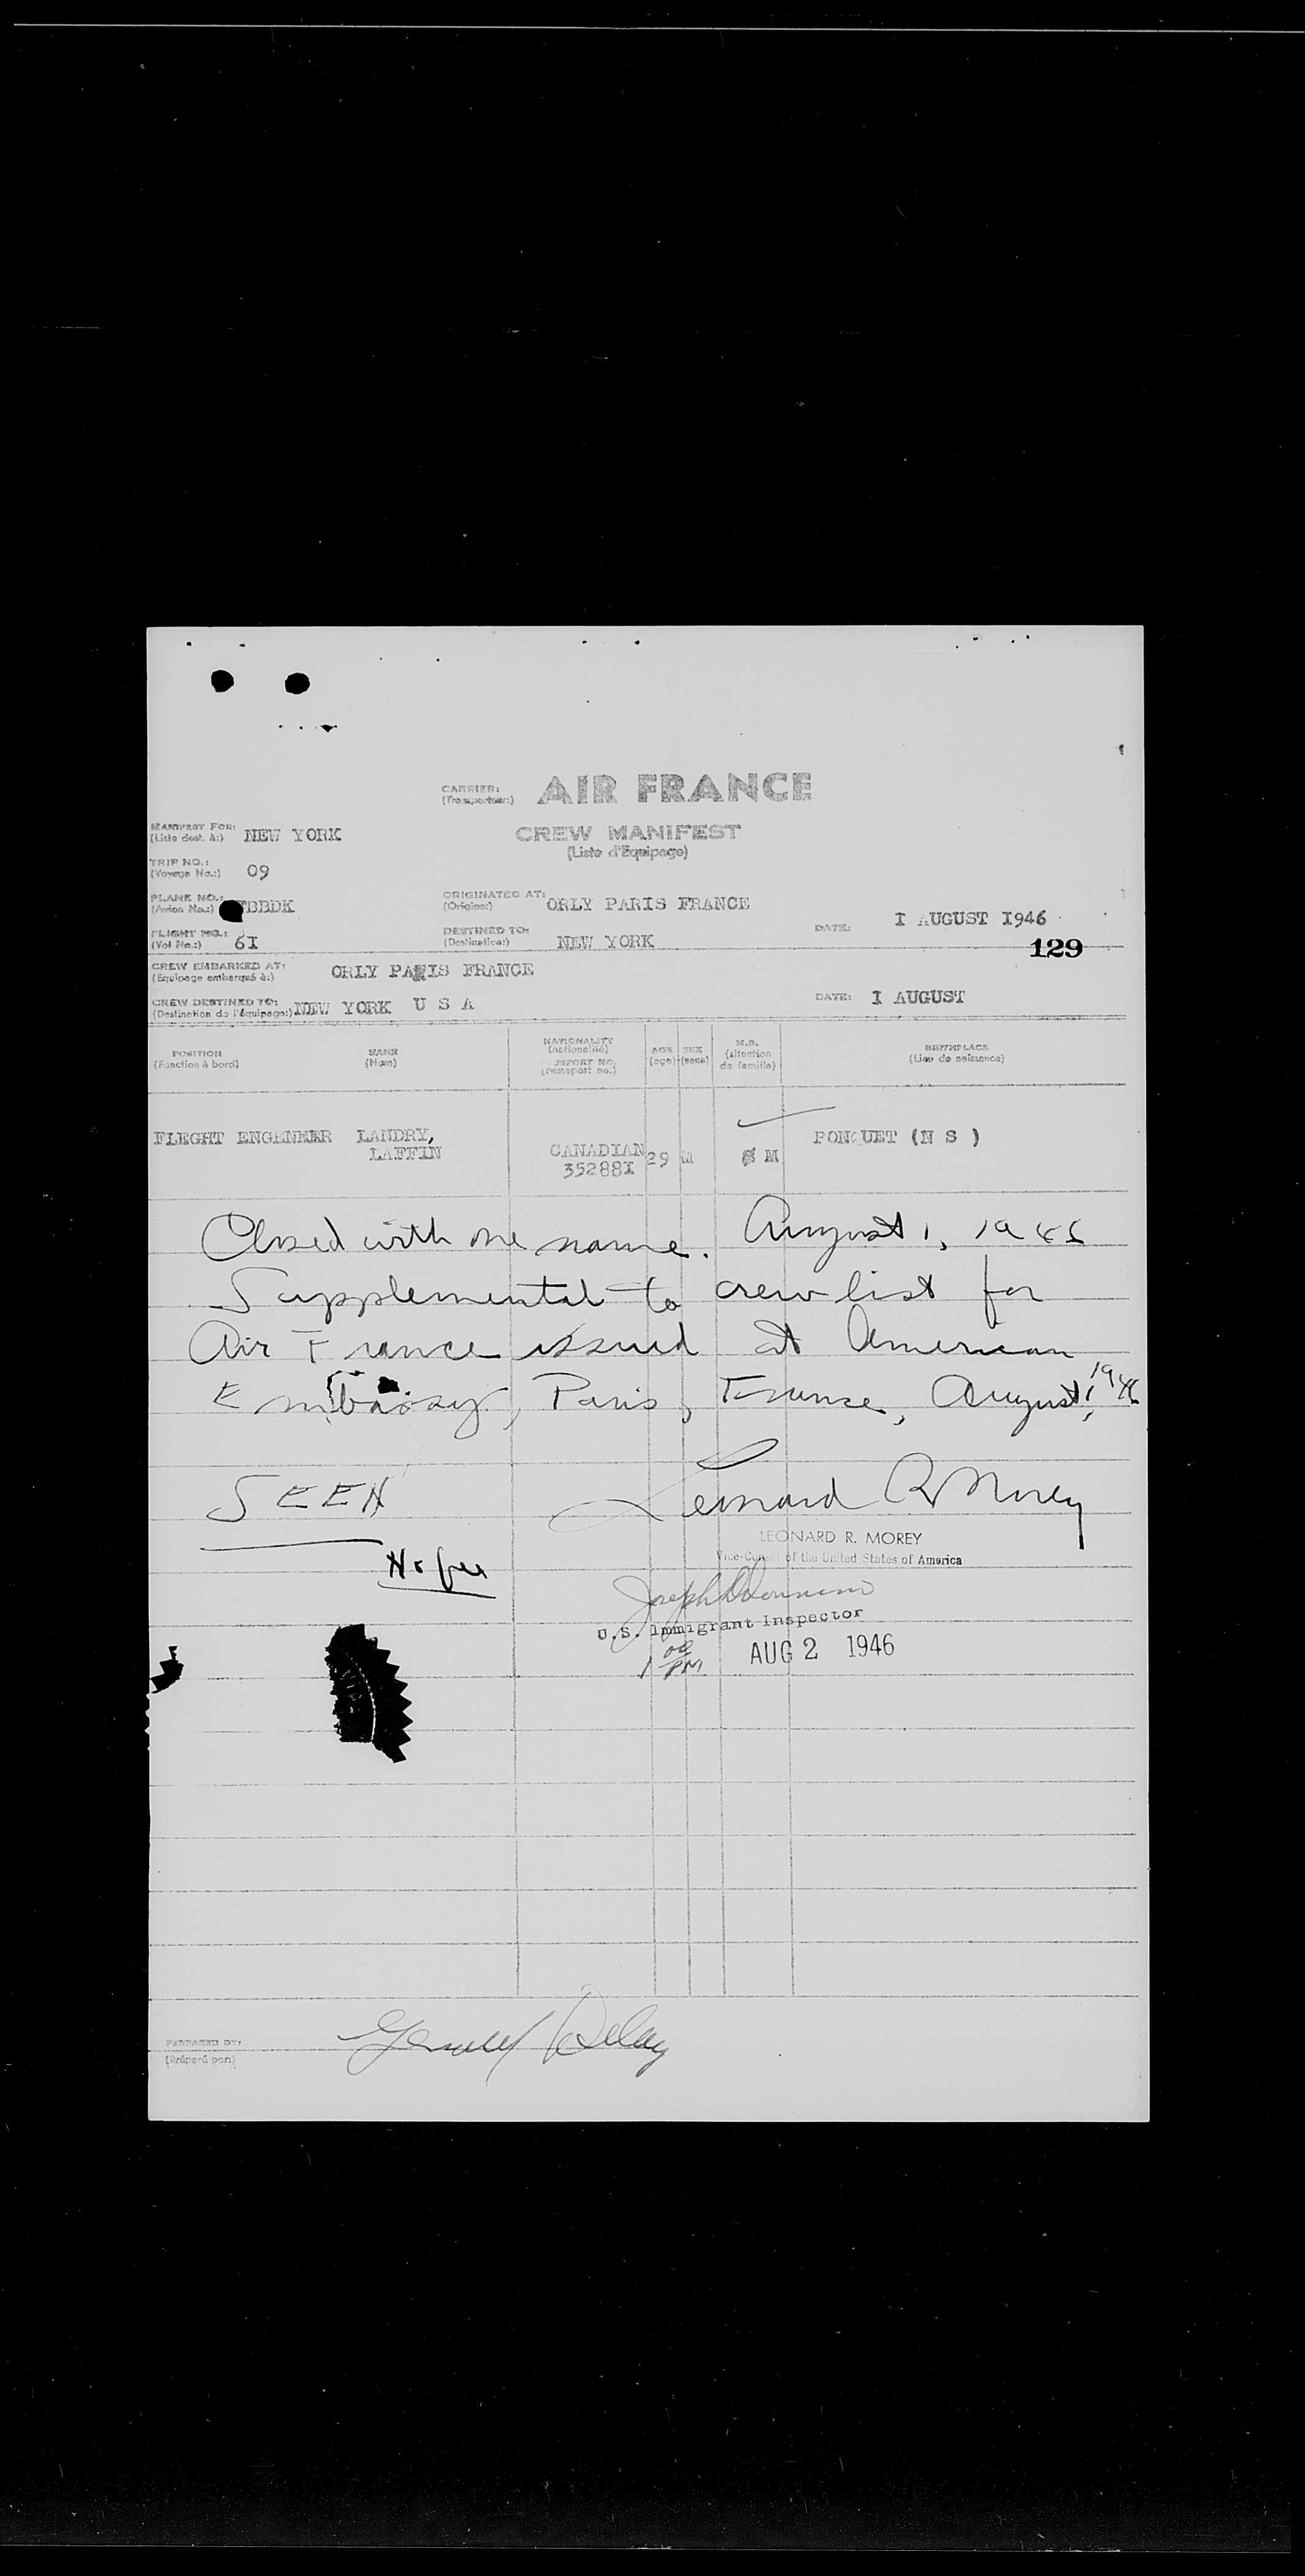 CARRIER: AIR FRANCE
(Transporteur:)
MANIFEST FOR: NEW YORK
(Liste dest. à:)
CREW MANIFEST
(Liste d'Equipage)
TRIP NO.: 09
(Voyage No.:)
PLANE NO.: FBBDK
(Avion No.:)
ORIGINATED AT: ORLY PARIS FRANCE
(Origine:)
DATE: I AUGUST I946
FLIGHT NO.: 6I
(Vol No.:)
DESTINED TO: NEW YORK
(Destination:)
129
CREW EMBARKED AT: ORLY PARIS FRANCE
(Equipage embarqué à:)
CREW DESTINED TO: NEW YORK U S A
(Destination de l'équipage:)
DATE: I AUGUST
POSITION
(Fonction à bord)
NAME
(Nom)
NATIONALITY
(nationalité)
PASSPORT NO.
(Passeport no.)
AGE
(age)
SEX
(sexe)
M.S.
(situation
de famille)
BIRTHPLACE
(Lieu de naissance)
FLEGHT ENGENEER LANDRY,
LAFFIN
CANADIAN
35288I
29 M M
PONQUET (N S )
Closed with one name. August 1, 1946
Supplemental to crew list for
Air France issued at American
Embassy, Paris, France, August 1, 1946
SEEN
Leonard R Morey
LEONARD R. MOREY
Vice-Consul of the United States of America
No fee
U.S. Immigrant Inspector
1 00 PM
AUG 2 1946
PREPARED BY:
(Préparé par:)